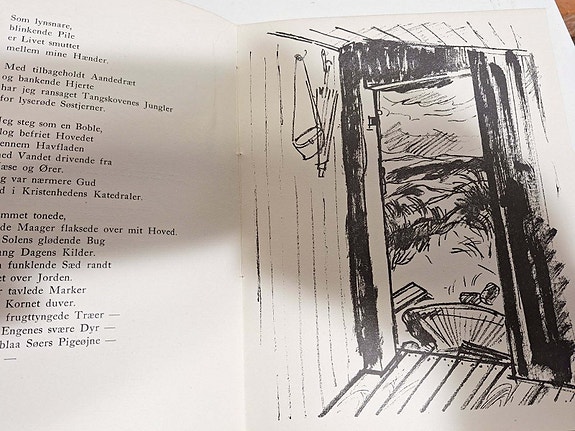 Som lynsnare,
blinkende Pile
er Livet smuttet
mellem mine Hænder.
Med tilbageholdt Aandedræt
og bankende Hjerte
har jeg ransaget Tangskovenes Jungler
for lyserøde Søstjerner.
Jeg steg som en Boble,
log befriet Hovedet
ennem Havfladen
ned Vandet drivende fra
æse og Ører.
g var nærmere Gud
d i Kristenhedens Katedraler.
mmet tonede,
de Maager flaksede over mit Hoved.
Solens glødende Bug
ang Dagens Kilder.
funklende Sæd randt
et over Jorden.
r tavlede Marker
Kornet duver.
frugttyngede Træer —
Engenes svære Dyr —
blaa Søers Pigeøjne —
—